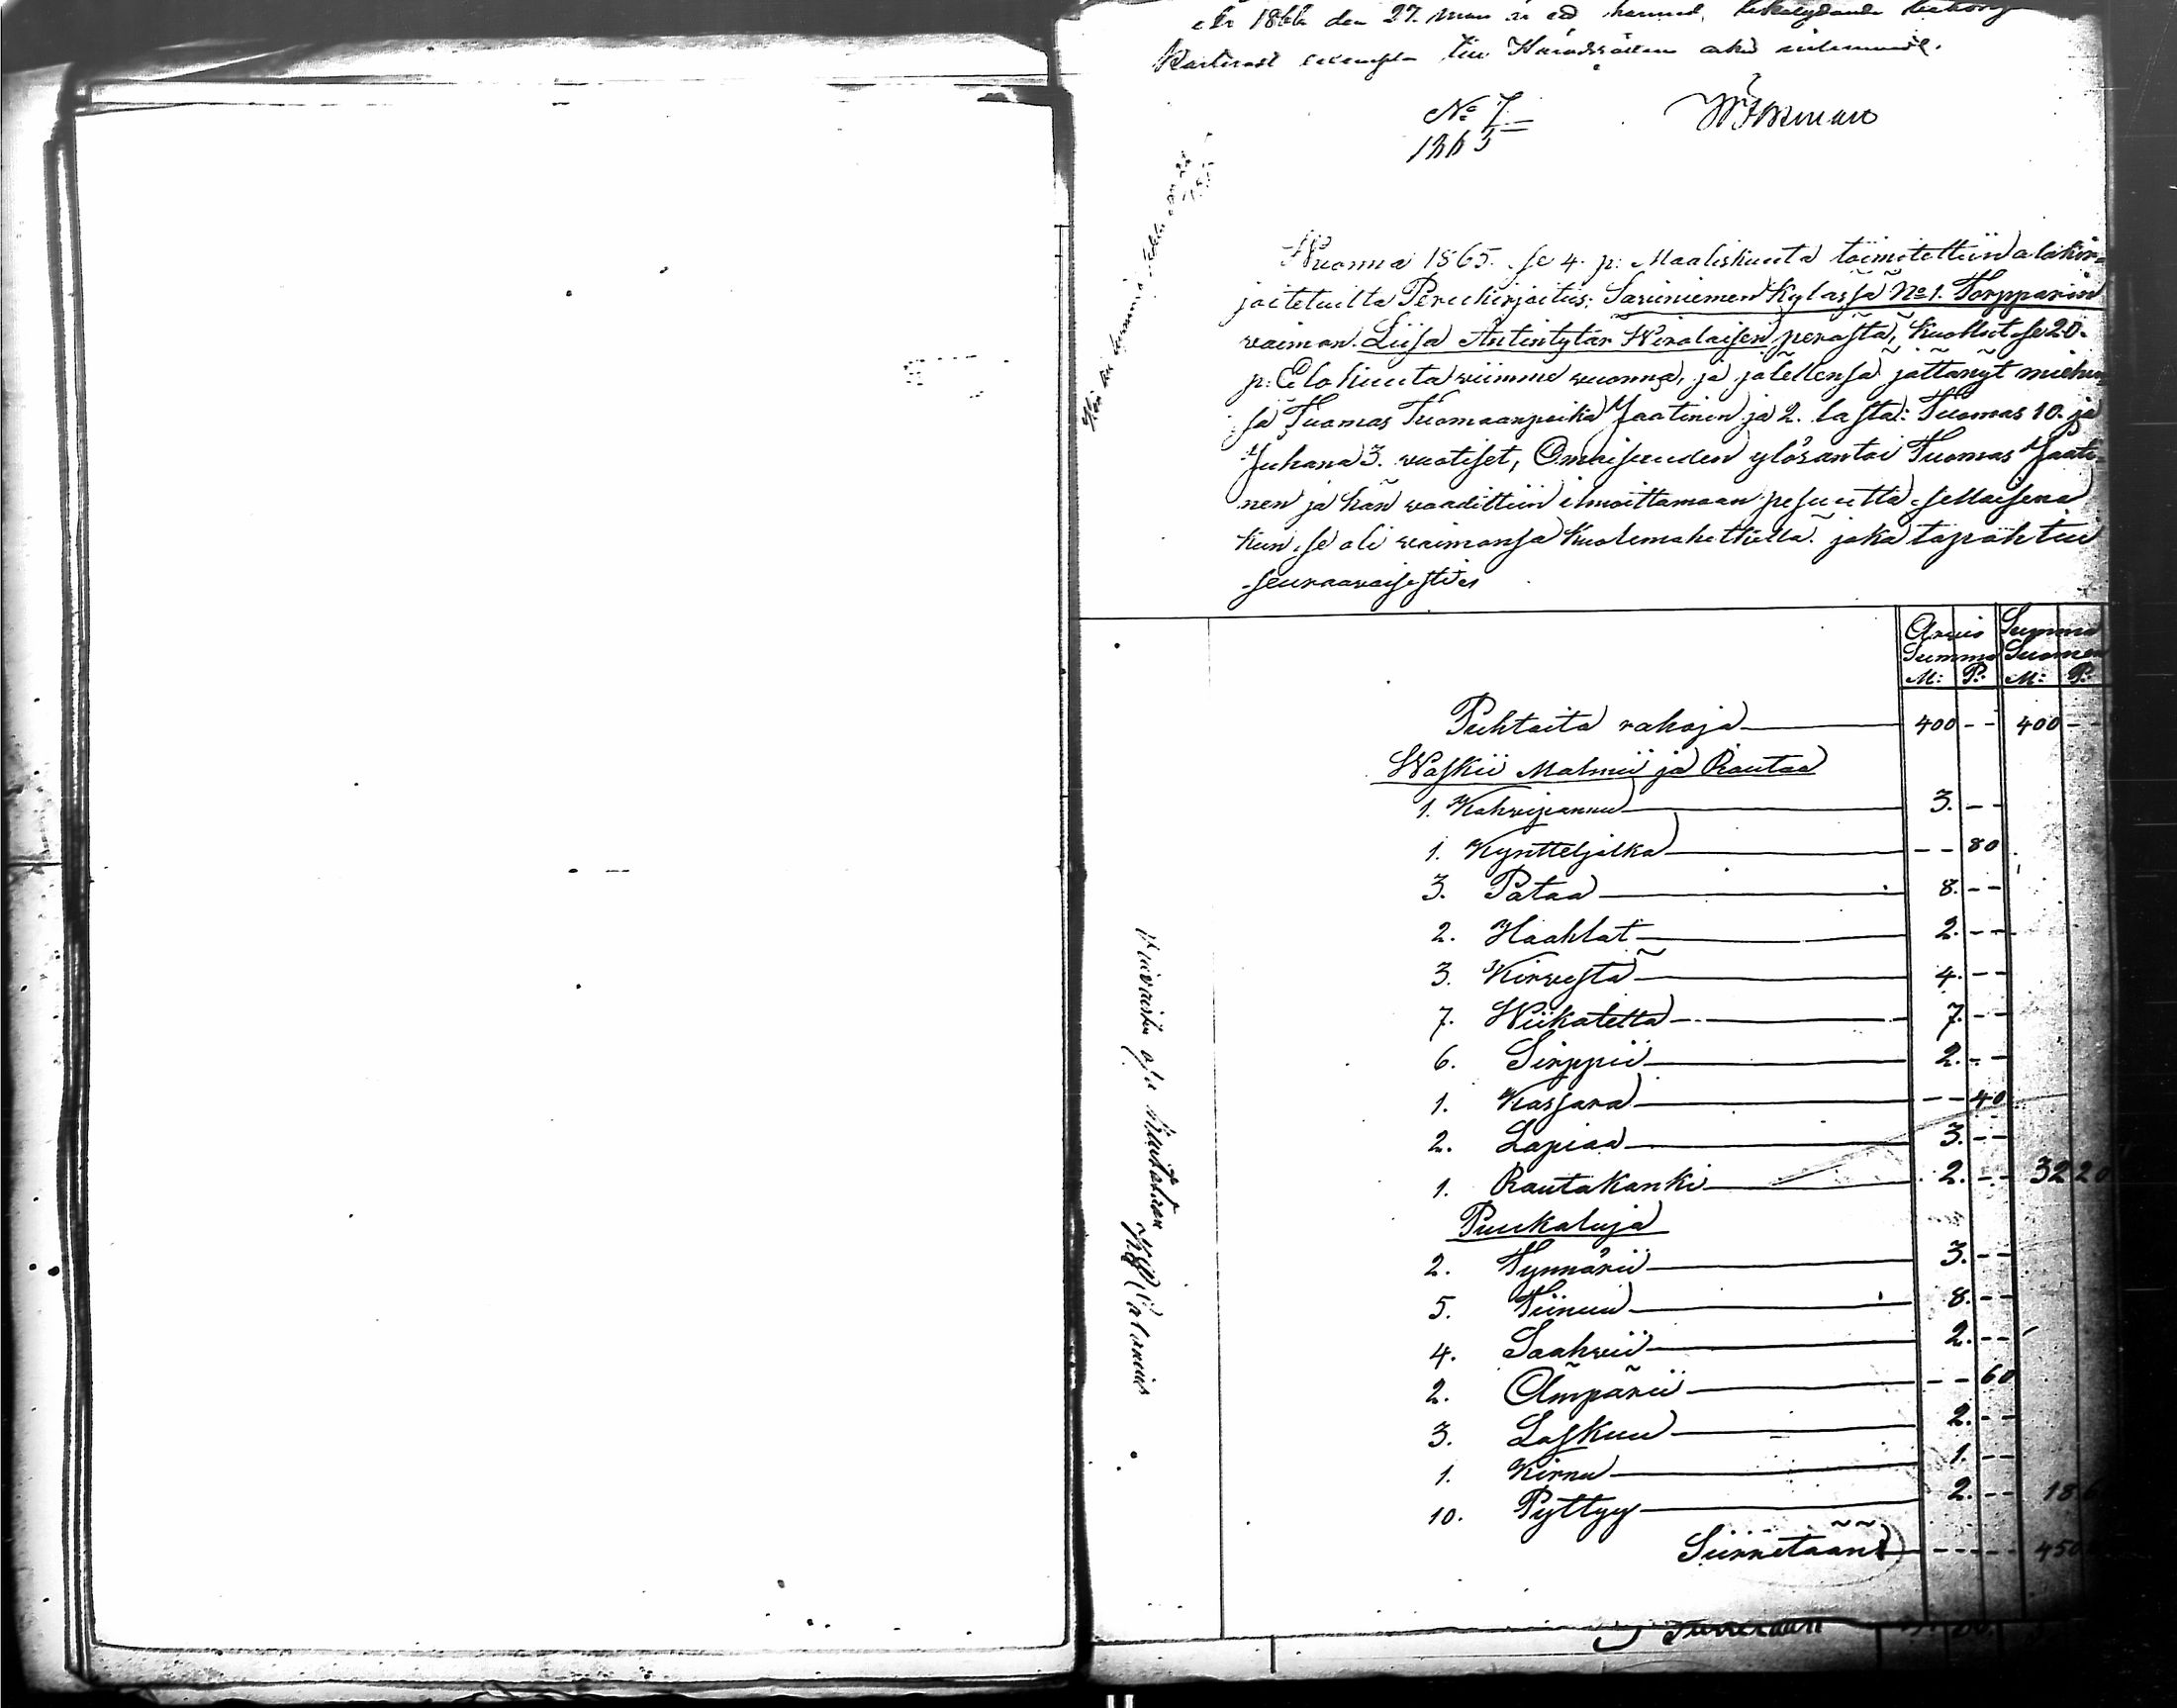 1866 den 27. 
exempl. till Häradsrätten 
No 7
1865
Wuonna 1865. se 4. p: Maaliskuuta toimitettiin alakir=
joitetuilta Perukirjoitus: Saruniemen Kylässä No 1. Torpparin
vaimon Liisa Antintytär Wirolaisen perästä, kuollut se 20.
p: Elokuuta viimme vuonna, ja jälellensä jättänyt miehen=
sä Tuomas Tuomaanpoika Jaatinen ja 2. lasta: Tuomas 10. ja
Juhana 3. vuotiset, Omaisuuden ylösantoi Tuomas Jaati=
nen ja hän vaadittiin ilmoittamaan pesuutta sellaisena
kun se oli vaimonsa kuolemahetkellä. joka tapahtui
seuraavaisesti:
Arvio Summa
Summa Suomen
M: P: M: P:
Puhtaita rahoja 400 - - 400 - -
Waskii Malmii ja Rautaa
1. Kahvipannu 3. - -
1. Kyntteljalka - - 80
3. Pataa 8. - -
2. Haahlat 2. - -
3. Kirvestä 4. - -
7. Wiikatetta 7. - -
6. Sirppii 2. - -
1. Kassara - - 40
2. Lapiaa 3. - -
1. Rautakanki 2. - - 32 20
Puukaluja
2. Tynnärii 3. - -
5. Tiinuu 8. - -
4. Saahvii 2. - -
2. Ämpärii - - 60
3. Laskuu 2. - -
1. Kirnu 1. - -
10. Pyttyy 2. - - 18 6
Siirretään - - - - 450
Vaivaisten osa kuitataan